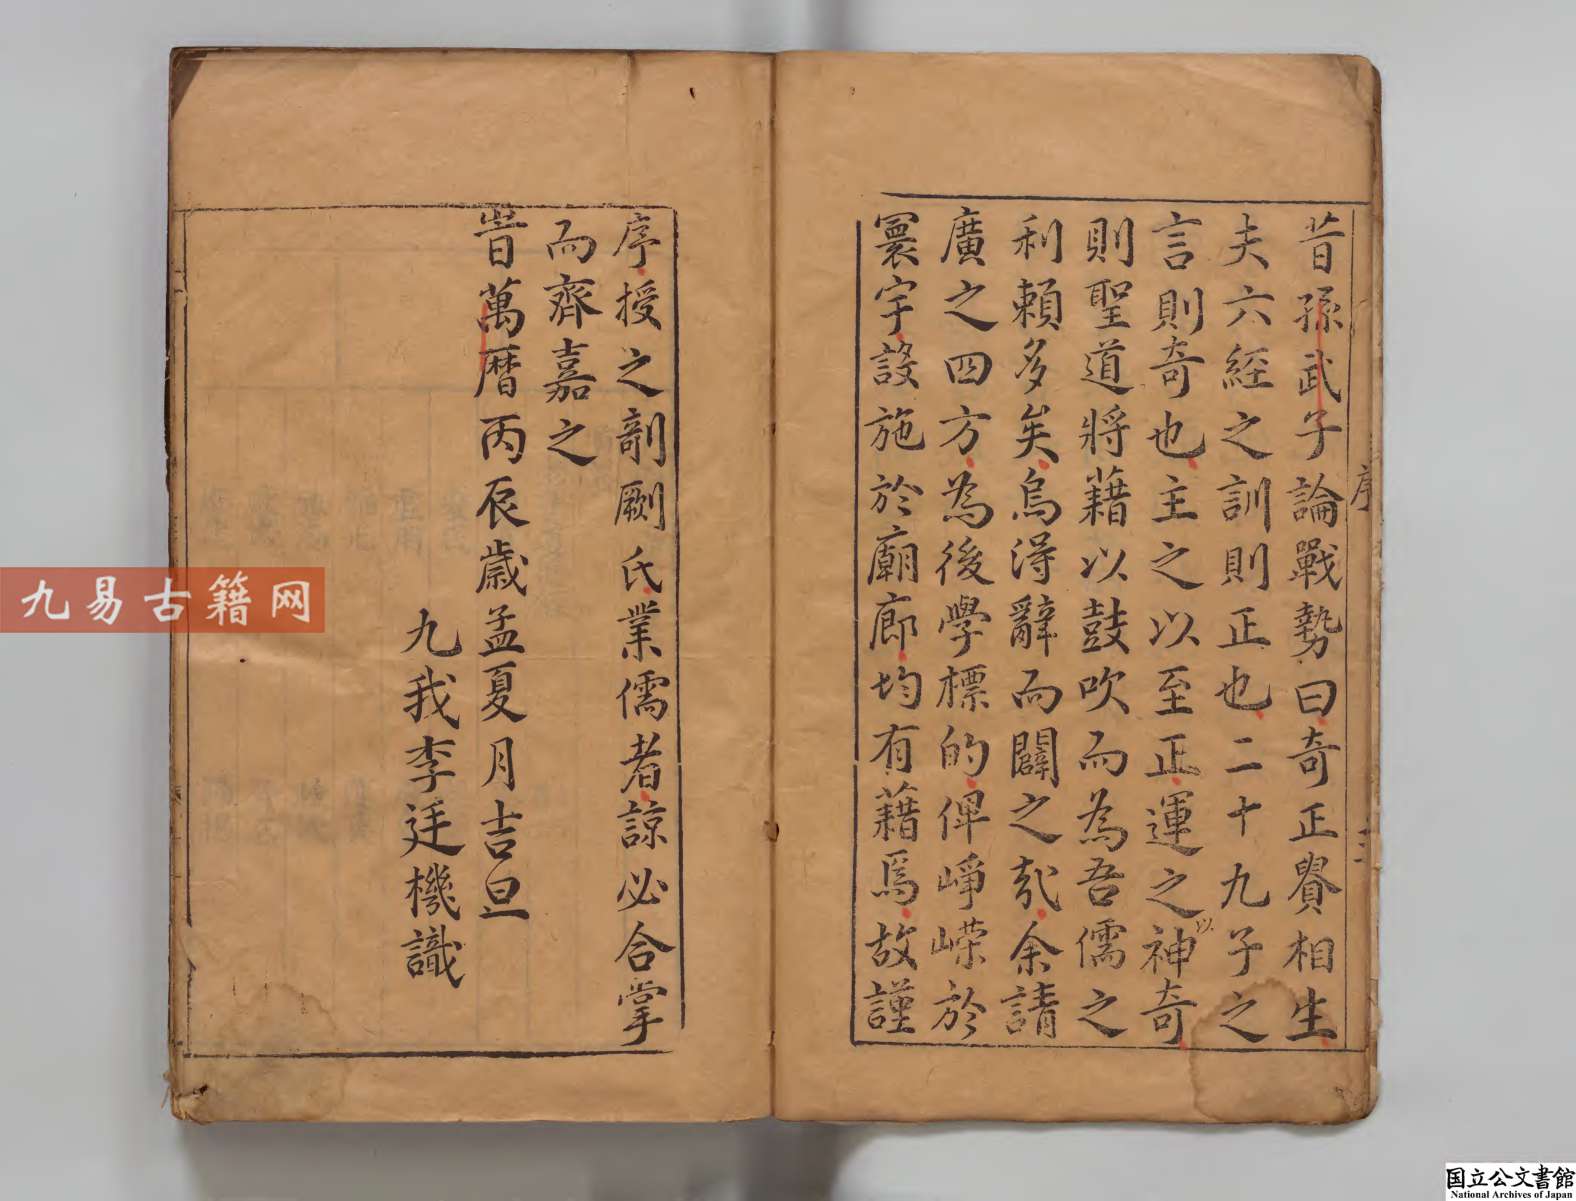 昔孫武子論戰勢曰奇正賚相生
夫六經之訓則正也二十九子之
言則奇也主之以至正運之以神奇
則聖道將藉以鼓吹而為吾儒之
利賴多矣烏淂辭而闢之㢤余請
廣之四方為後學標的俾崢嶸於
寰宇設施於廟廊均有藉焉故謹
序授之剞劂氏業儒者諒必合掌
而齊嘉之
旹萬曆丙辰歲孟夏月吉旦
九我李廷機識
序
九易古籍网
国立公文書館
National Archives of Japan